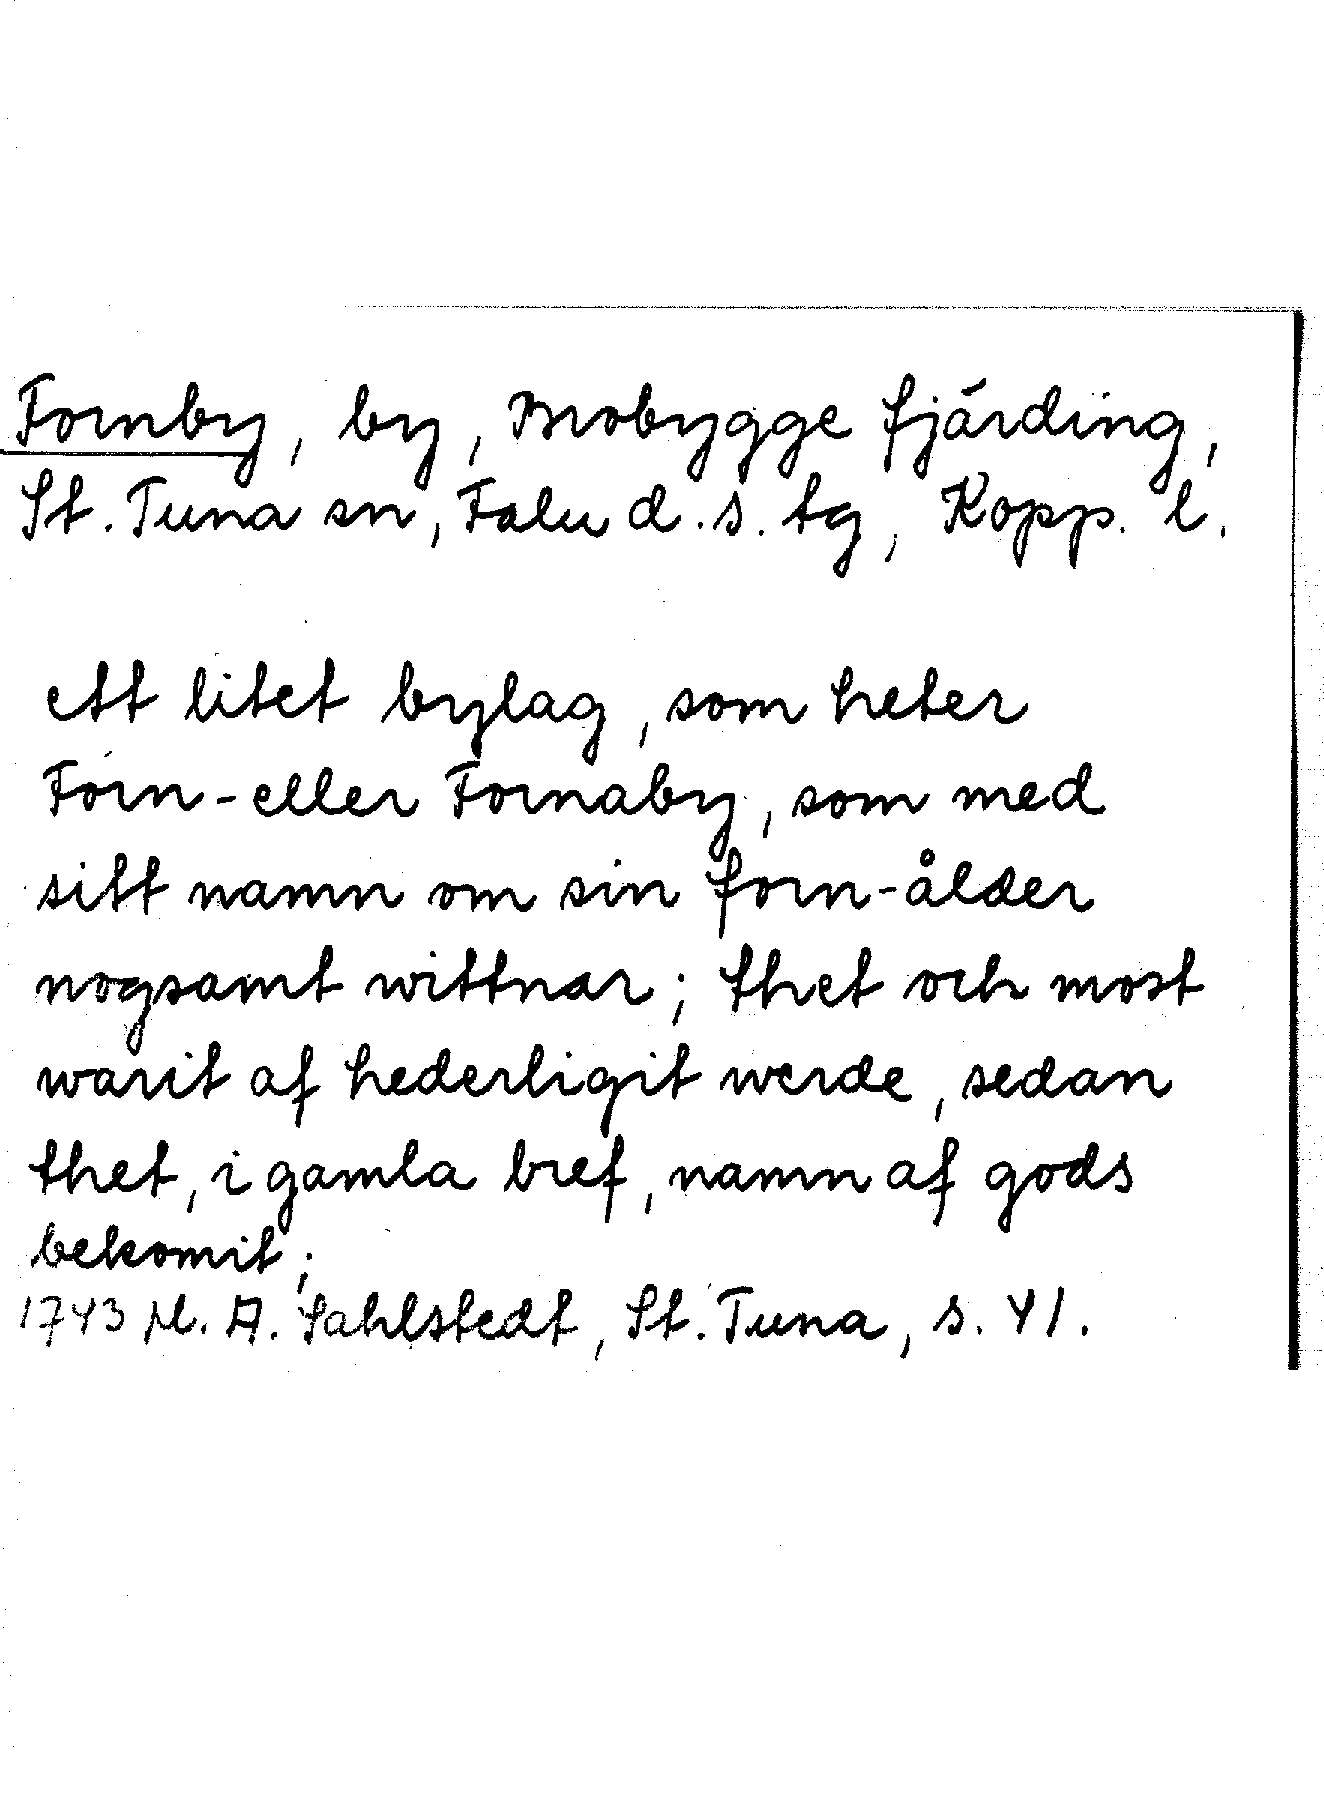 Fornby, by, Brobygge fjärding,
St. Tuna sn, Falu d. s. tg, Kopp. l.
ett litet bylag, som heter
Forn- eller Fornaby, som med
sitt namn om sin forn-ålder
nogsamt wittnar; thet och most
warit af hederligit werde, sedan
thet, i gamla bref, namn af gods
bekomit;
1743 M. A. Sahlstedt, St. Tuna, s. 41.